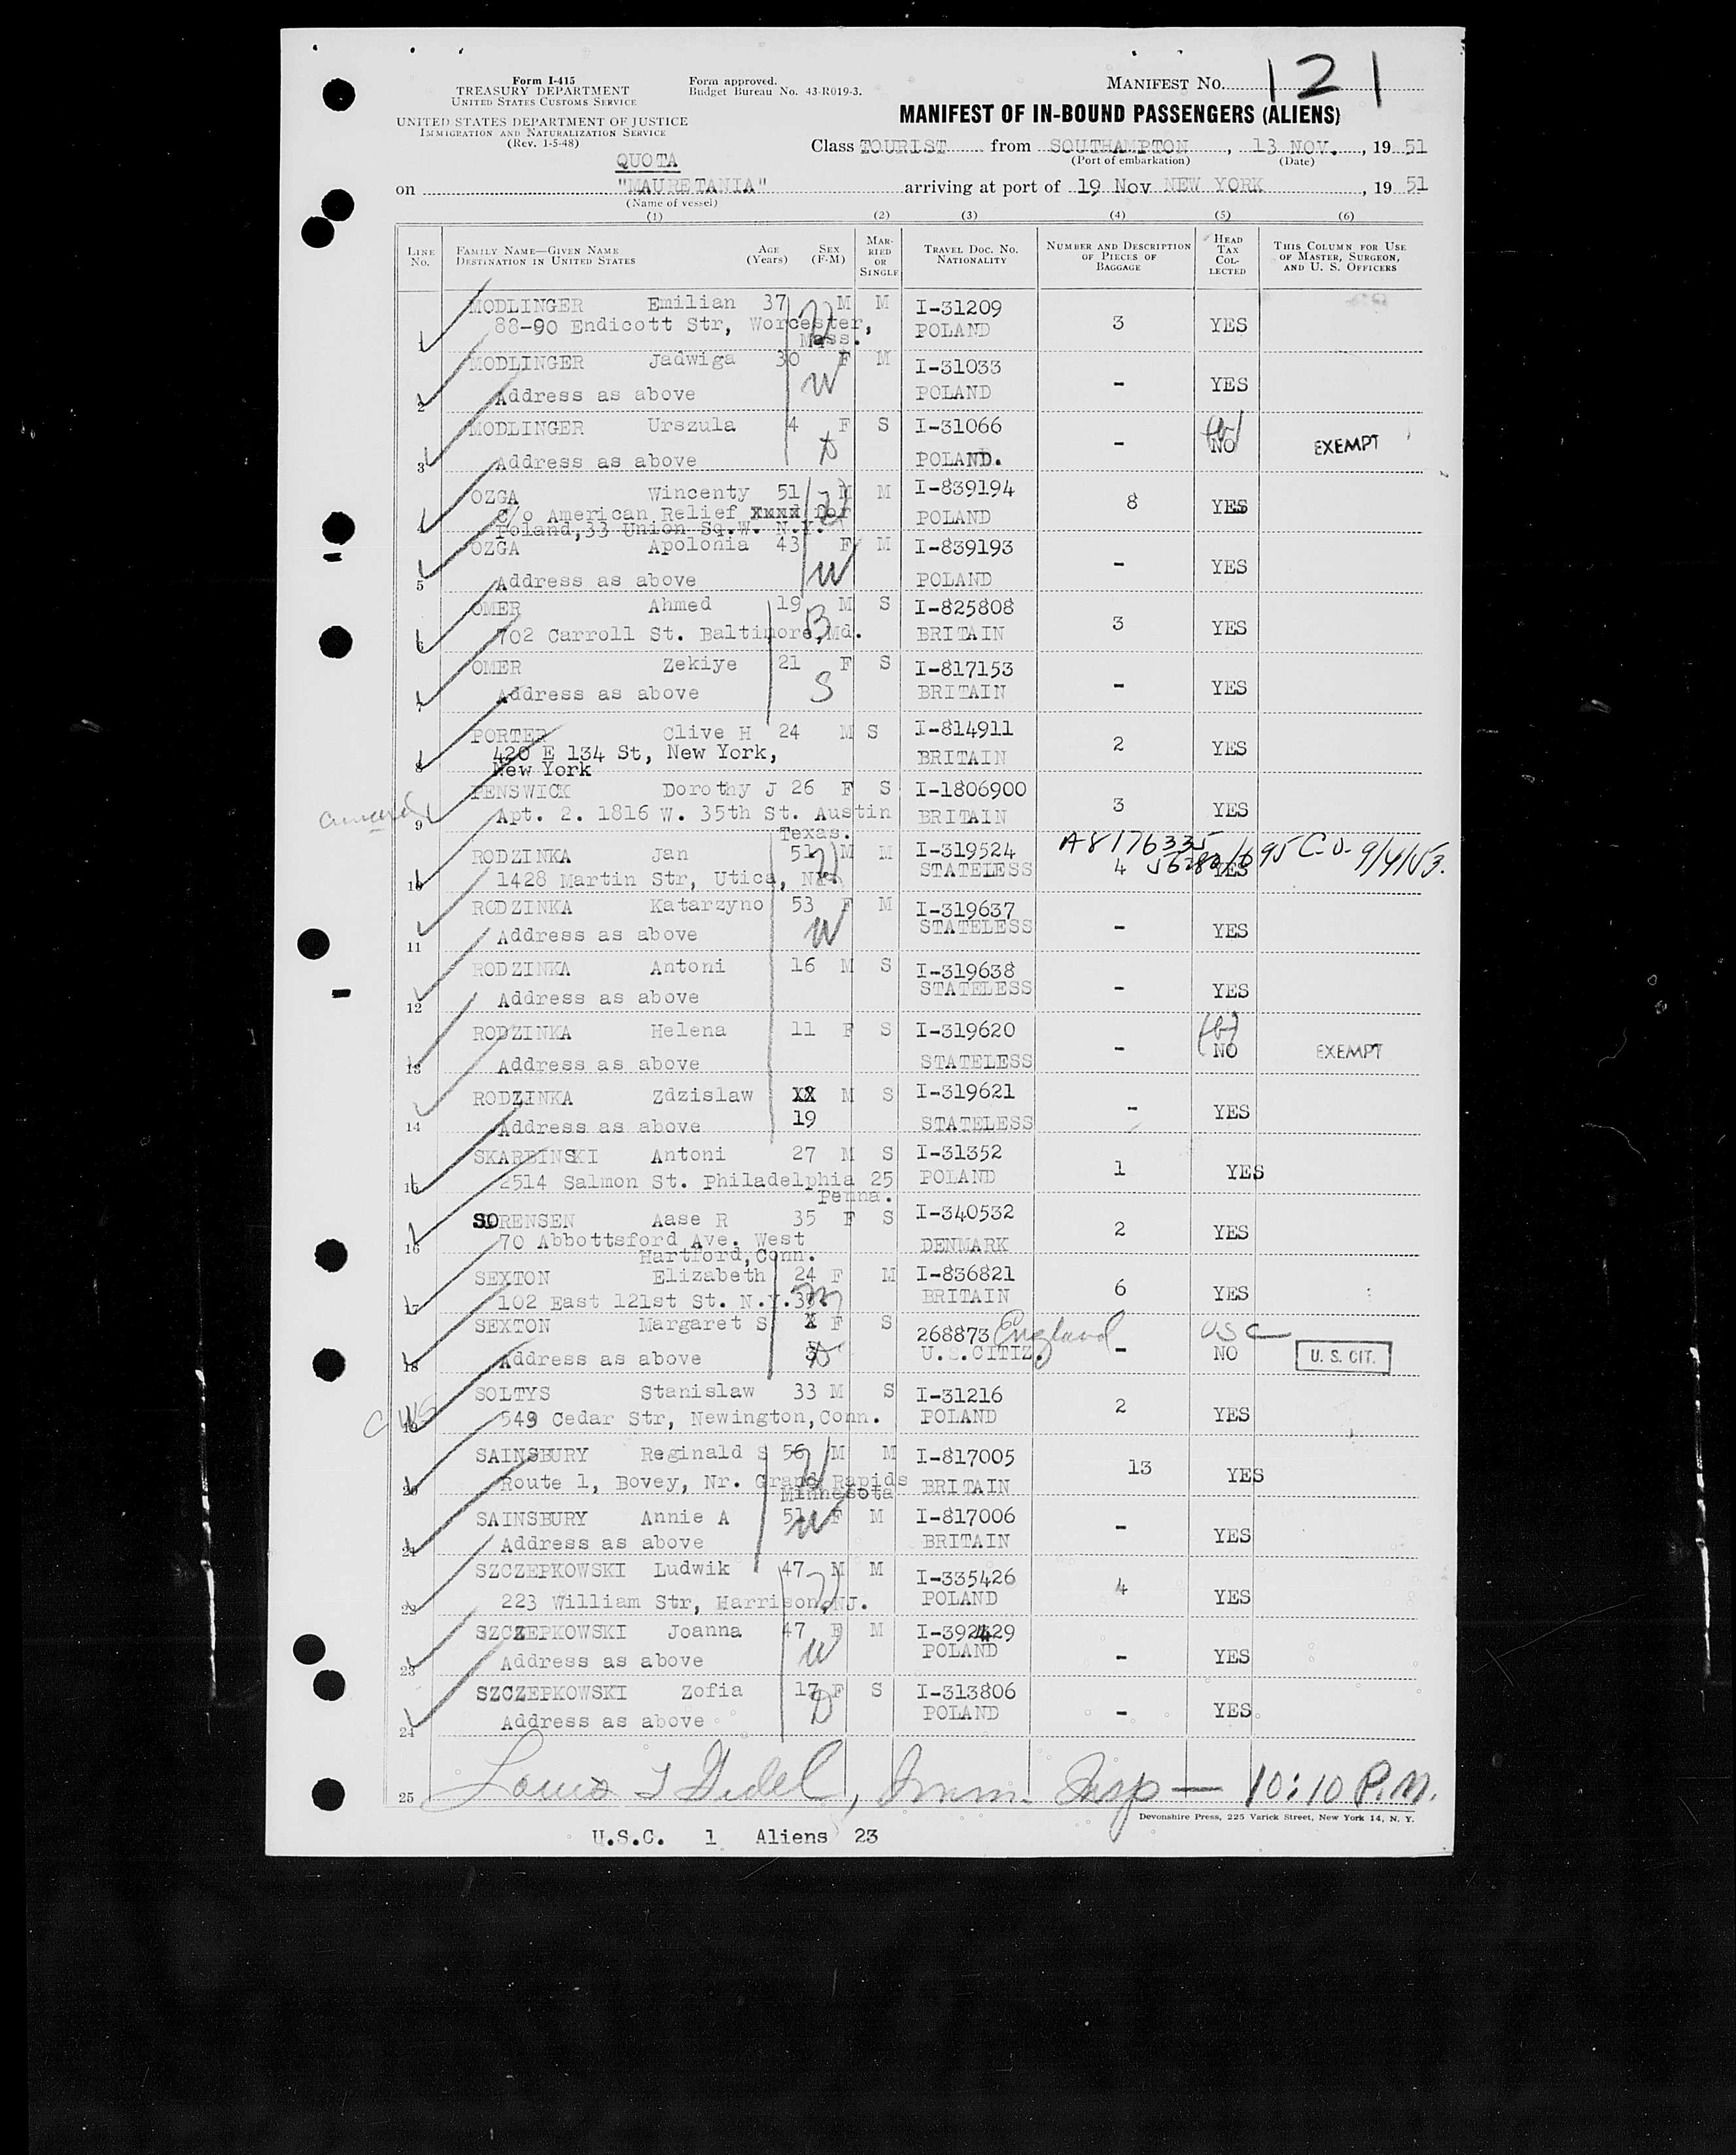 Form I-415
TREASURY DEPARTMENT
UNITED STATES CUSTOMS SERVICE
UNITED STATES DEPARTMENT OF JUSTICE
IMMIGRATION AND NATURALIZATION SERVICE
(Rev. 1-5-48)
Form approved.
Budget Bureau No. 43-R019-3.
MANIFEST NO. 121
MANIFEST OF IN-BOUND PASSENGERS (ALIENS)
Class TOURIST from SOUTHAMPTON, 13 NOV., 19 51
(Port of embarkation) (Date)
QUOTA
on "MAURETANIA" arriving at port of 19 Nov NEW YORK, 19 51
(Name of vessel)
(1) (2) (3) (4) (5) (6)
LINE No. FAMILY NAME—GIVEN NAME DESTINATION IN UNITED STATES AGE (Years) SEX (F-M) MARRIED OR SINGLE TRAVEL DOC. NO. NATIONALITY NUMBER AND DESCRIPTION OF PIECES OF BAGGAGE HEAD TAX COLLECTED THIS COLUMN FOR USE OF MASTER, SURGEON, AND U. S. OFFICERS
1 MODLINGER Emilian 37 M M I-31209 3 YES
88-90 Endicott Str, Worcester, POLAND
Mass.
2 MODLINGER Jadwiga 30 F M I-31033 - YES
W
Address as above POLAND
3 MODLINGER Urszula 4 F S I-31066 - NO EXEMPT
D
Address as above POLAND.
4 OZGA Wincenty 51 M M I-839194 8 YES
c/o American Relief xxxx for POLAND
Poland,33 Union Sq.W. N.Y.
5 OZGA Apolonia 43 F M I-839193 - YES
W
Address as above POLAND
6 OMER Ahmed 19 M S I-825808 3 YES
B
702 Carroll St. Baltimore,Md. BRITAIN
7 OMER Zekiye 21 F S I-817153 - YES
S
Address as above BRITAIN
8 PORTER Clive H 24 M S I-814911 2 YES
420 E 134 St, New York, BRITAIN
New York
9 PENSWICK Dorothy J 26 F S I-1806900 3 YES
Apt. 2. 1816 W. 35th St. Austin BRITAIN
Texas.
A8176335
10 RODZINKA Jan 51 M M I-319524 4 YES 9/4/53.
1428 Martin Str, Utica, NY. STATELESS
11 RODZINKA Katarzyno 53 F M I-319637 - YES
W
Address as above STATELESS
12 RODZINKA Antoni 16 M S I-319638 - YES
Address as above STATELESS
13 RODZINKA Helena 11 F S I-319620 - NO EXEMPT
Address as above STATELESS
14 RODZINKA Zdzislaw XX M S I-319621 - YES
19
Address as above STATELESS
15 SKARBINSKI Antoni 27 M S I-31352 1 YES
2514 Salmon St. Philadelphia 25 POLAND
Penna.
16 SORENSEN Aase R 35 F S I-340532 2 YES
70 Abbottsford Ave. West DENMARK
Hartford,Conn.
17 SEXTON Elizabeth 24 F M I-836821 6 YES
102 East 121st St. N.Y. BRITAIN
18 SEXTON Margaret S X F S 268873 England - USC NO U. S. CIT.
Address as above 3 D U.S.CITIZ.
19 SOLTYS Stanislaw 33 M S I-31216 2 YES
549 Cedar Str, Newington,Conn. POLAND
20 SAINSBURY Reginald S 56 M M I-817005 13 YES
Route 1, Bovey, Nr. Grand Rapids BRITAIN
Minnesota
21 SAINSBURY Annie A 51 F M I-817006 - YES
W
Address as above BRITAIN
22 SZCZEPKOWSKI Ludwik 47 M M I-335426 4 YES
223 William Str, Harrison,NJ. POLAND
23 SZCZEPKOWSKI Joanna 47 F M I-392429 - YES
W
Address as above POLAND
24 SZCZEPKOWSKI Zofia 17 F S I-313806 - YES
D
Address as above POLAND
25 Imm. Insp — 10:10 P.M.
Devonshire Press, 225 Varick Street, New York 14, N. Y.
U.S.C. 1 Aliens 23